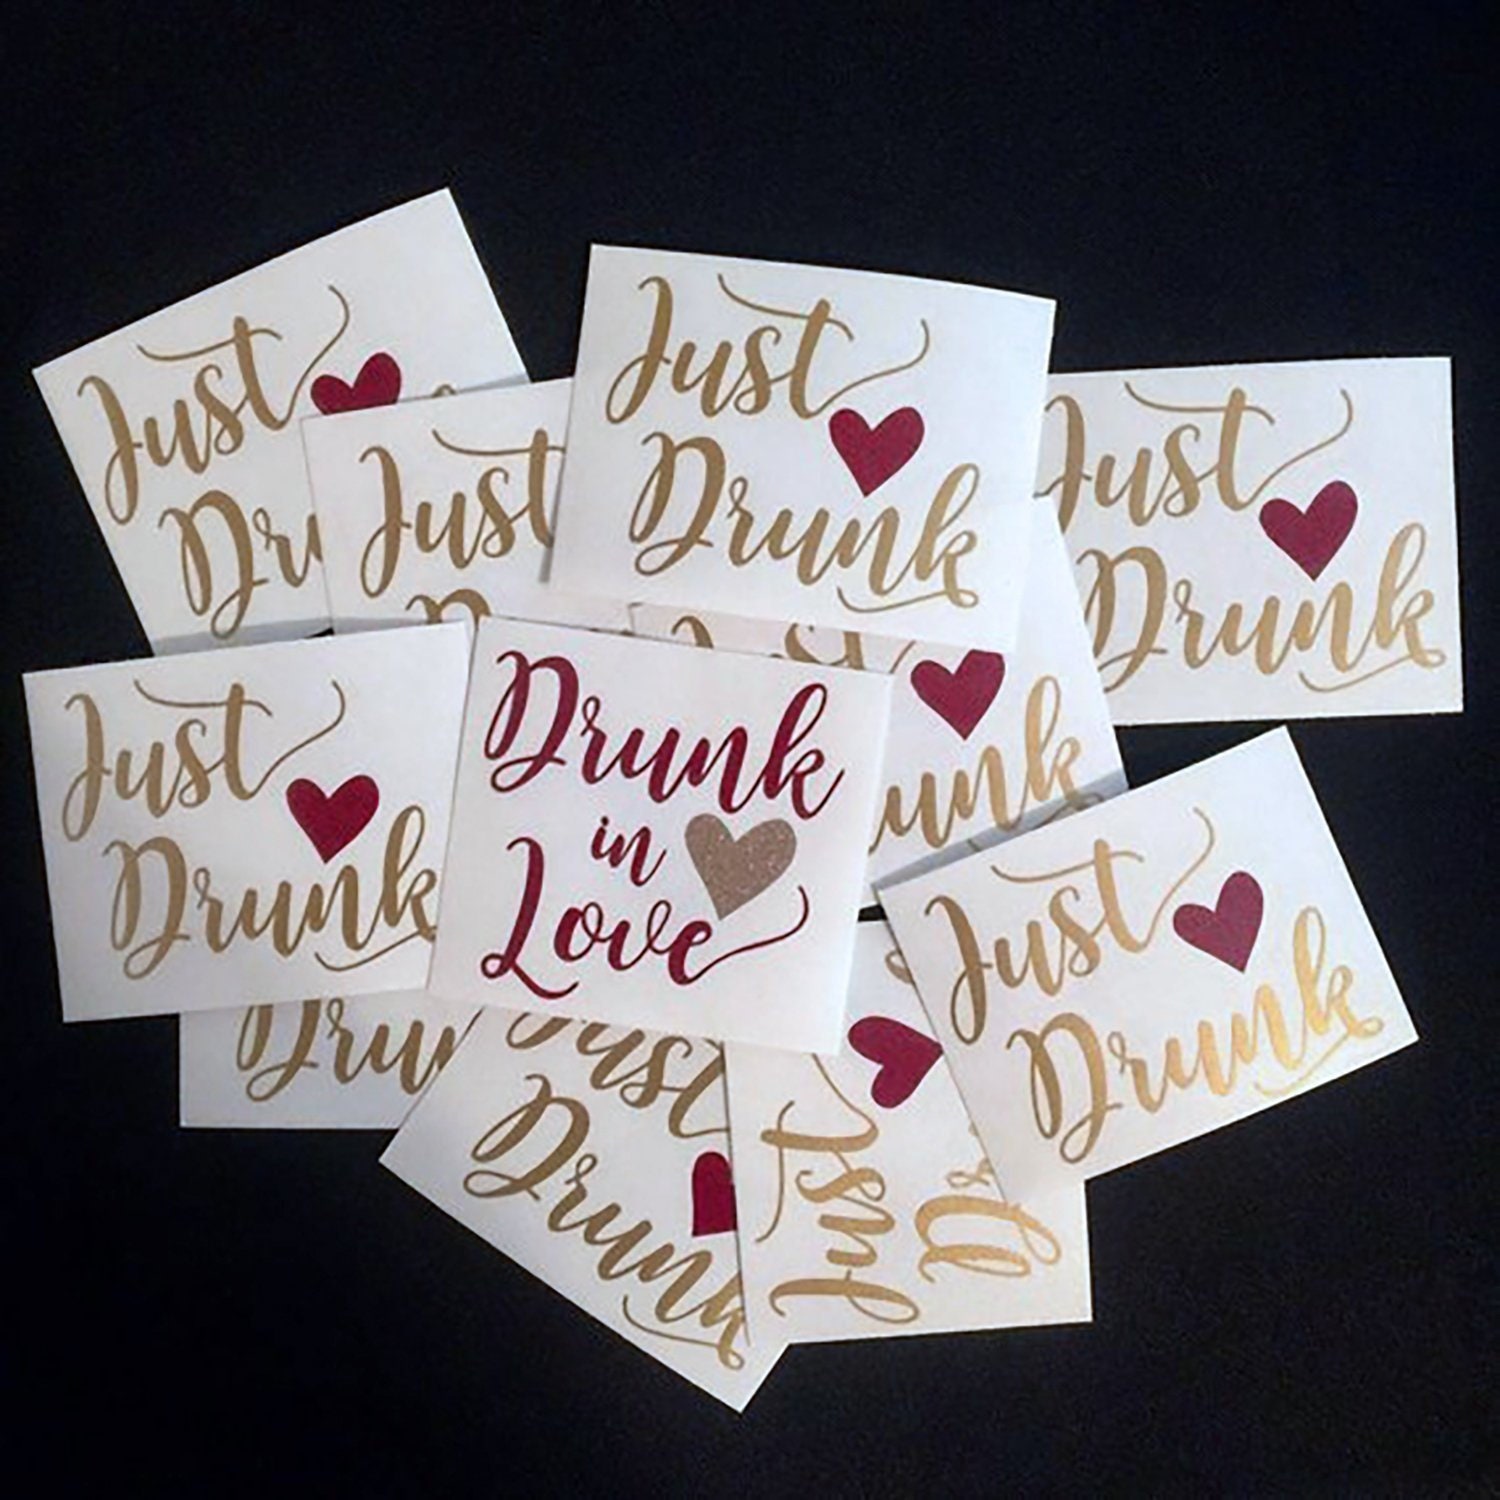 Just
Just
Drunk
Just
Just
Drunk
Just
Drunk
Drunk
in
Love
Just
Drunk
Just
Drunk
Just